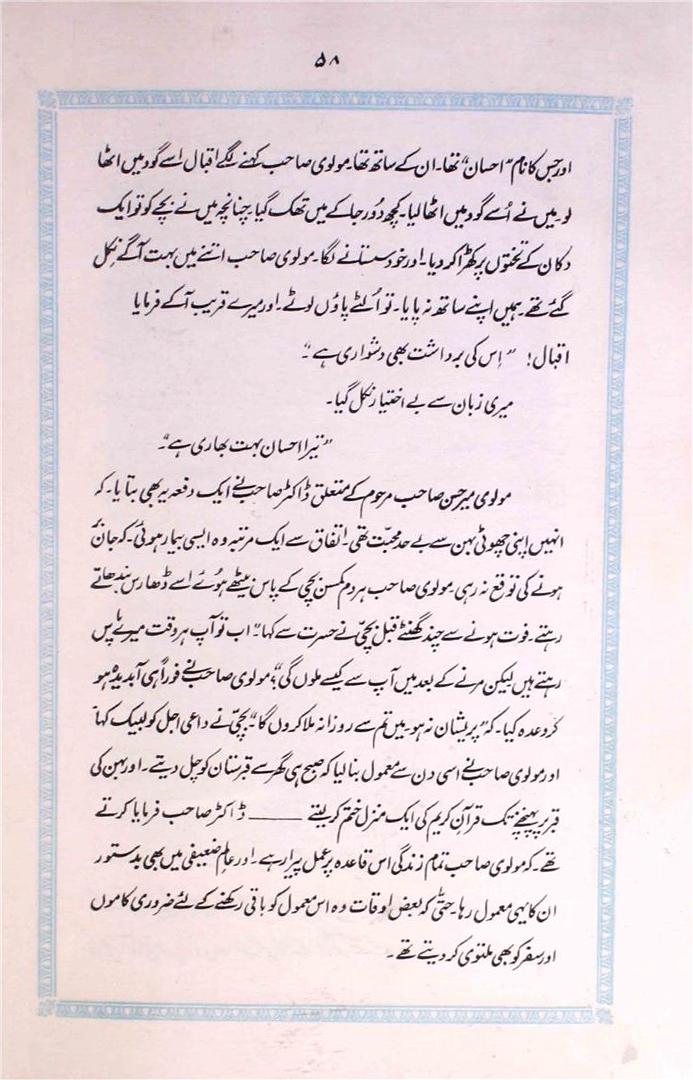 ۵۸
اور جس کا نام "احسان" تھا۔ ان کے ساتھ تھا۔ مولوی صاحب کہنے لگے اقبال اسے گود میں اٹھا
لو۔ میں نے اُسے گود میں اٹھا لیا۔ کچھ دُور جا کے میں تھک گیا۔ چنانچہ میں نے بچے کو تو ایک
دکان کے تختوں پر کھڑا کر دیا۔ اور خود سستانے لگا۔ مولوی صاحب اتنے میں بہت آگے نکل
گئے تھے۔ ہمیں اپنے ساتھ نہ پایا۔ تو اُلٹے پاؤں لوٹے۔ اور میرے قریب آکے فرمایا
اقبال! "اِس کی برداشت بھی دشواری ہے"۔
میری زبان سے بے اختیار نکل گیا۔
"تیرا احسان بہت بھاری ہے"۔
مولوی میر حسن صاحب مرحوم کے متعلق ڈاکٹر صاحب نے ایک دفعہ یہ بھی بتایا۔ کہ
انہیں اپنی چھوٹی بہن سے بے حد محبت تھی۔ اتفاق سے ایک مرتبہ وہ ایسی بیمار ہوئی۔ کہ جانبر
ہونے کی توقع نہ رہی۔ مولوی صاحب ہر دم کمسن بچی کے پاس بیٹھے ہوئے اسے ڈھارس بندھاتے
رہتے۔ فوت ہونے سے چند گھنٹے قبل بچی نے حسرت سے کہا۔ "اب تو آپ ہر وقت میرے پاس
رہتے ہیں لیکن مرنے کے بعد میں آپ سے کیسے ملوں گی"؟ مولوی صاحب نے فوراً ہی آبدیدہ ہو
کر وعدہ کیا۔ کہ "پریشان نہ ہو۔ میں تم سے روزانہ ملا کروں گا" بچی نے داعی اجل کو لبیک کہا
اور مولوی صاحب نے اسی دن سے معمول بنا لیا کہ صبح ہی گھر سے قبرستان کو چل دیتے۔ اور بہن کی
قبر پر پہنچنے تک قرآنِ کریم کی ایک منزل ختم کر لیتے ——— ڈاکٹر صاحب فرمایا کرتے
تھے۔ کہ مولوی صاحب تمام زندگی اس قاعدہ پر عمل پیرا رہے۔ اور عالم ضعیفی میں بھی بدستور
ان کا یہی معمول رہا۔ حتّٰی کہ بعض اوقات وہ اس معمول کو باقی رکھنے کے لئے ضروری کاموں
اور سفر کو بھی ملتوی کر دیتے تھے۔